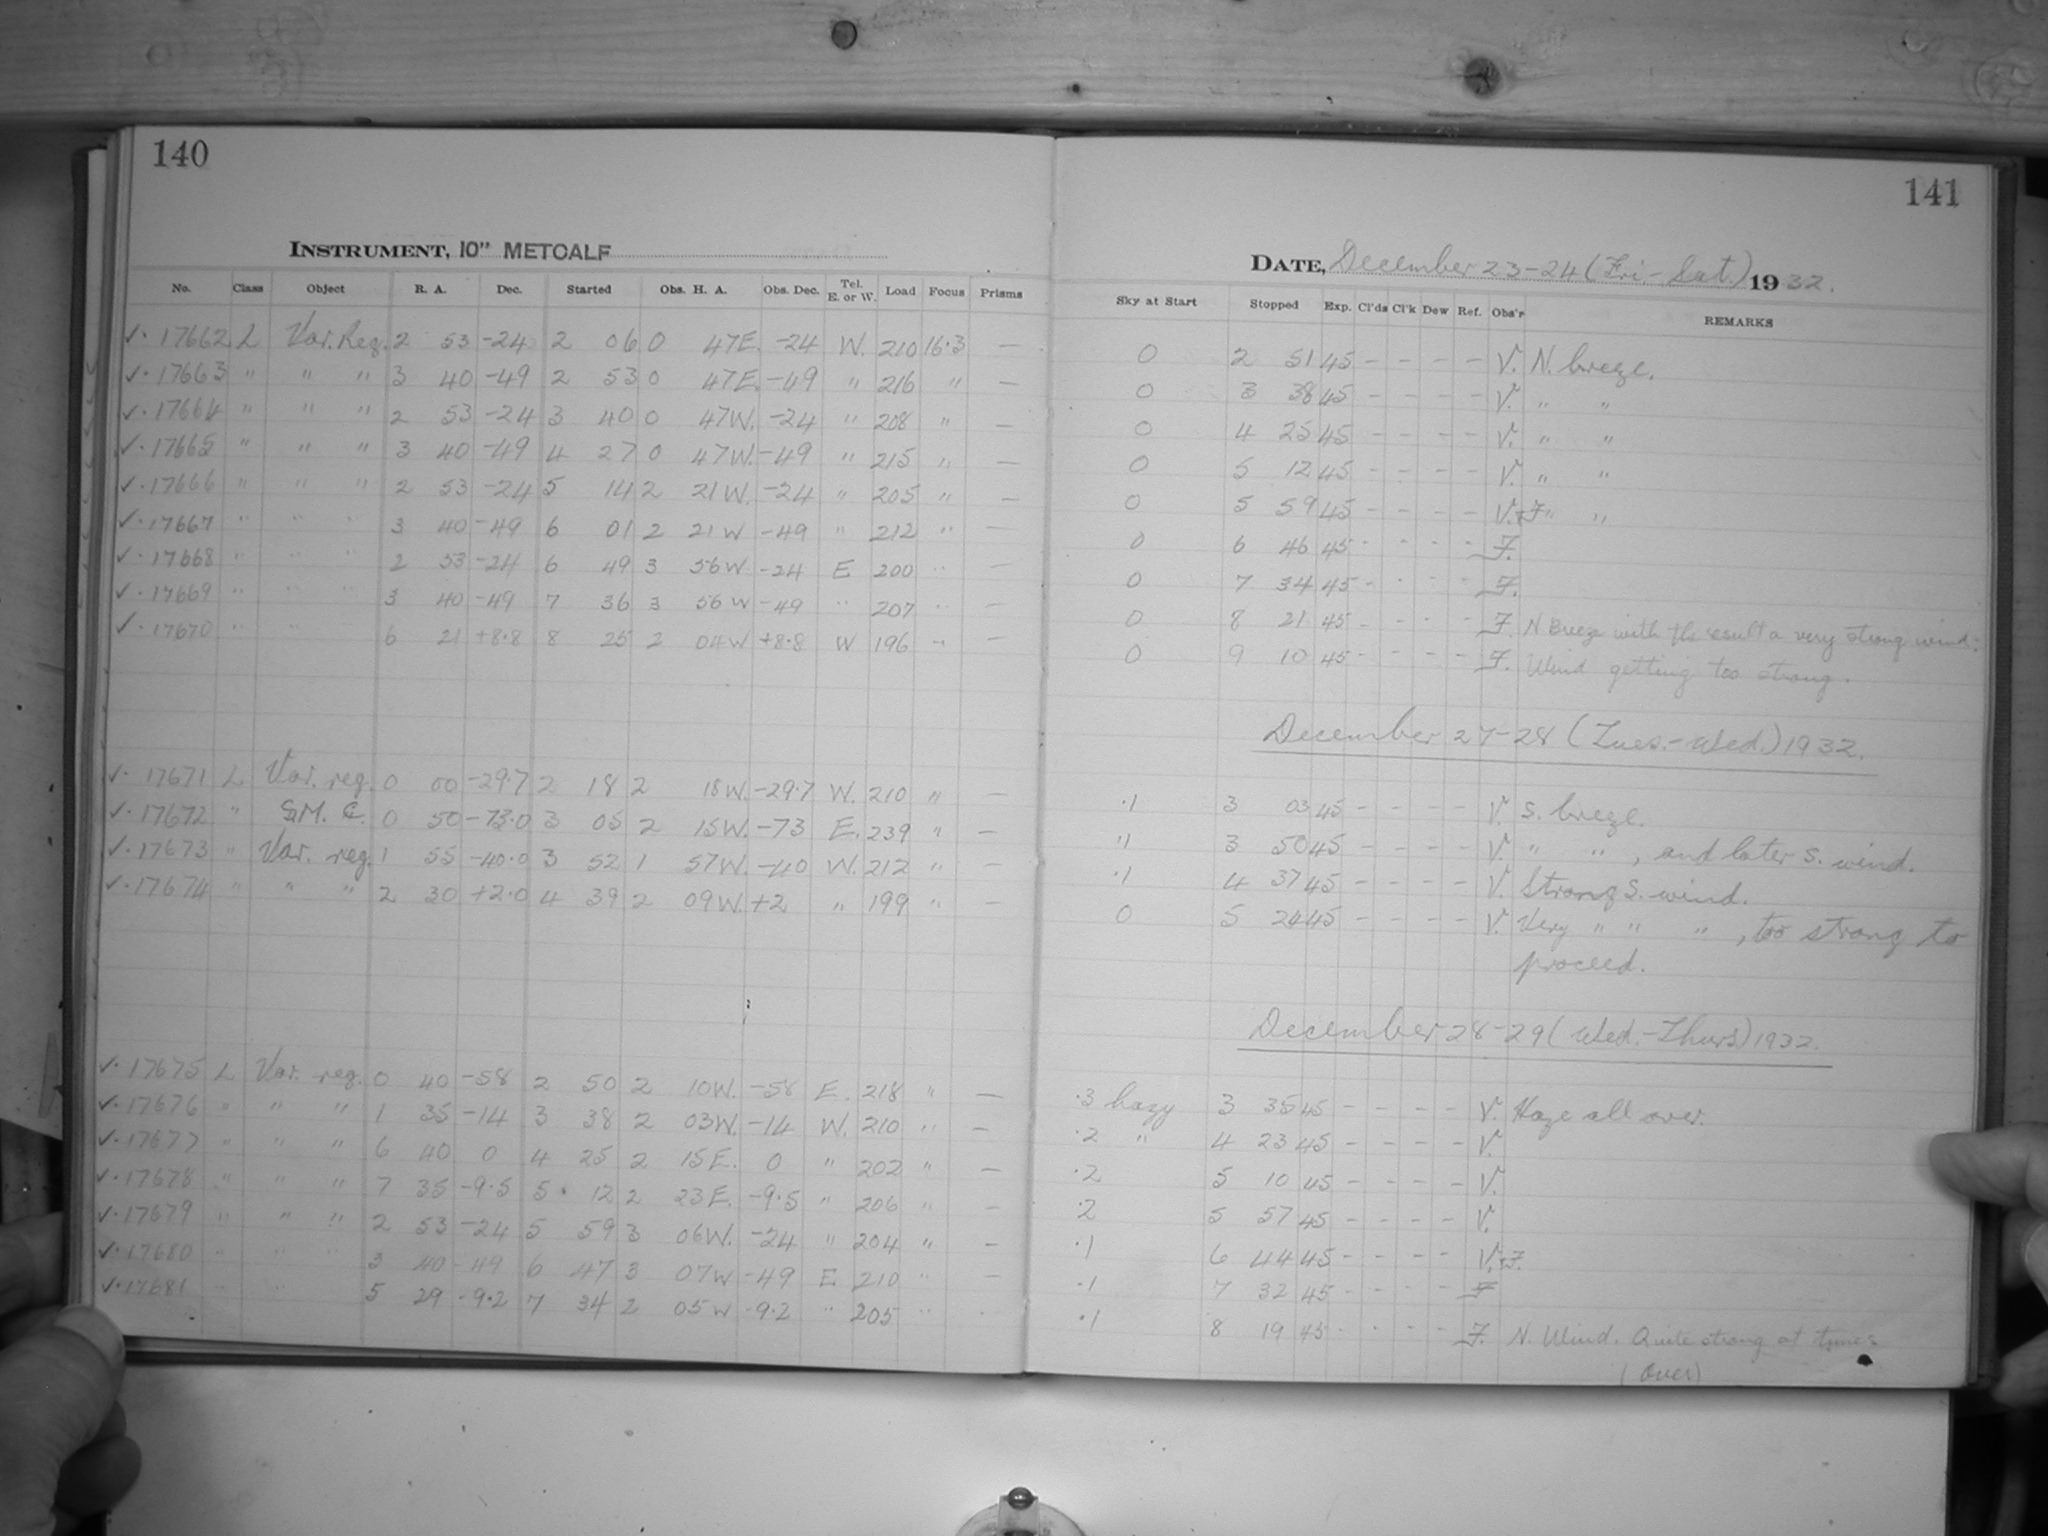 140
INSTRUMENT, 10" METCALF
No. Class Object R. A. Dec. Started Obs. H. A. Obs. Dec. Tel. E. or W. Load Focus Prisms
✓. 17662 L Var. Reg. 2 53 -24 2 06 0 47E. -24 W. 210 16.3 —
✓. 17663 " " " 3 40 -49 2 53 0 47E. -49 " 216 " —
✓. 17664 " " " 2 53 -24 3 40 0 47W. -24 " 208 " —
✓. 17665 " " " 3 40 -49 4 27 0 47W. -49 " 215 " —
✓. 17666 " " " 2 53 -24 5 14 2 21W. -24 " 205 " —
✓. 17667 " " " 3 40 -49 6 01 2 21W -49 " 212 " —
✓. 17668 " " " 2 53 -24 6 49 3 56W -24 E 200 " —
✓. 17669 " " " 3 40 -49 7 36 3 56W -49 " 207 " —
✓. 17670 " " 6 21 +8.8 8 25 2 04W +8.8 W 196 " —
✓. 17671 L Var. reg. 0 00 -29.7 2 18 2 18W. -29.7 W. 210 " —
✓. 17672 " S.M. C. 0 50 -73.0 3 05 2 15W. -73 E. 239 " —
✓. 17673 " Var. reg. 1 55 -40.0 3 52 1 57W. -40 W. 212 " —
✓. 17674 " " " 2 30 +2.0 4 39 2 09W. +2 " 199 " —
✓. 17675 L Var. reg. 0 40 -58 2 50 2 10W. -58 E. 218 " —
✓. 17676 " " " 1 35 -14 3 38 2 03W. -14 W. 210 " —
✓. 17677 " " " 6 40 0 4 25 2 15E. 0 " 202 " —
✓. 17678 " " " 7 35 -9.5 5 12 2 23E. -9.5 " 206 " —
✓. 17679 " " " 2 53 -24 5 59 3 06W. -24 " 204 " —
✓. 17680 " " " 3 40 -49 6 47 3 07W -49 E 210 " —
✓. 17681 " " 5 29 -9.2 7 34 2 05W -9.2 " 205 " -
141
DATE, December 23-24 (Fri.-Sat.) 1932.
Sky at Start Stopped Exp. Cl'ds Cl'k Dew Ref. Obs'r REMARKS
0 2 51 45 - - - - V. N. breeze.
0 3 38 45 - - - - V. " "
0 4 25 45 - - - - V. " "
0 5 12 45 - - - - V. " "
0 5 59 45 - - - - V.+F " "
0 6 46 45 - - - - F.
0 7 34 45 - - - - F.
0 8 21 45 - - - - F. N Breeze with the result a very strong wind.
0 9 10 45 - - - - F. Wind getting too strong.
December 27-28 (Tues.-Wed.) 1932.
.1 3 03 45 - - - - V. S. breeze.
.1 3 50 45 - - - - V. " " , and later S. wind.
.1 4 37 45 - - - - V. Strong S. wind.
0 5 24 45 - - - - V. Very " " " , too strong to
proceed.
December 28-29 (Wed.-Thurs) 1932.
.3 hazy 3 35 45 - - - - V. Haze all over.
.2 " 4 23 45 - - - - V.
.2 5 10 45 - - - - V.
.2 5 57 45 - - - - V.
.1 6 44 45 - - - - V.+F.
.1 7 32 45 - - - - F
.1 8 19 45 - - - - F. N. Wind. Quite strong at times
(Over)